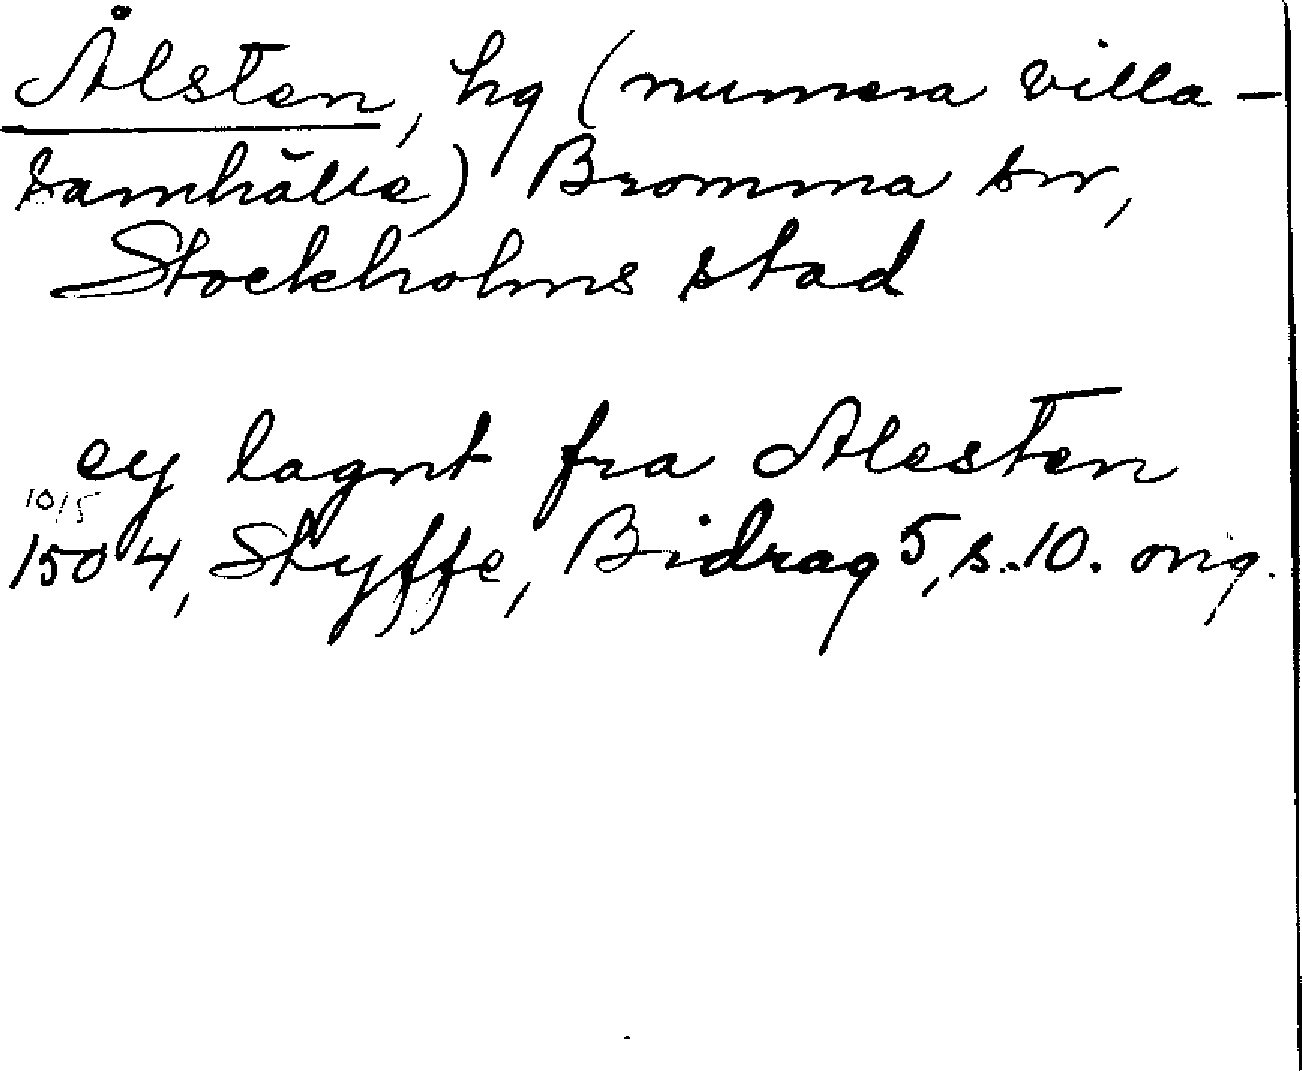 Ålsten, hg (numera villa-
samhälle) Bromma sn,
Stockholms stad
ey lagnt fra Alesten
10/5
1504, Styffe, Bidrag 5, s. 10. orig.